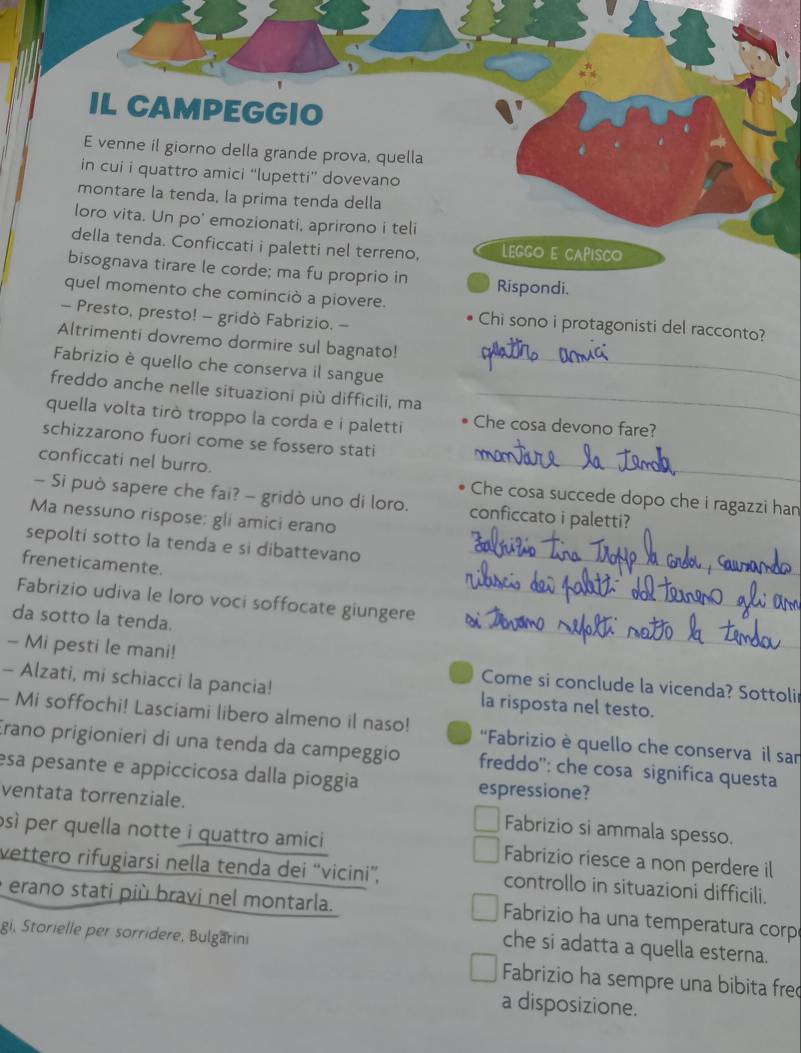 IL CAMPEGGIO
E venne il giorno della grande prova, quella
in cui i quattro amici “lupetti” dovevano
montare la tenda, la prima tenda della
loro vita. Un po’ emozionati, aprirono i teli
della tenda. Conficcati i paletti nel terreno,
bisognava tirare le corde; ma fu proprio in
quel momento che cominciò a piovere.
– Presto, presto! – gridò Fabrizio. –
Altrimenti dovremo dormire sul bagnato!
Fabrizio è quello che conserva il sangue
freddo anche nelle situazioni più difficili, ma
quella volta tirò troppo la corda e i paletti
schizzarono fuori come se fossero stati
conficcati nel burro.
– Si può sapere che fai? – gridò uno di loro.
Ma nessuno rispose: gli amici erano
sepolti sotto la tenda e si dibattevano
freneticamente.
Fabrizio udiva le loro voci soffocate giungere
da sotto la tenda.
– Mi pesti le mani!
– Alzati, mi schiacci la pancia!
– Mi soffochi! Lasciami libero almeno il naso!
Erano prigionieri di una tenda da campeggio
esa pesante e appiccicosa dalla pioggia
ventata torrenziale.
osì per quella notte i quattro amici
vettero rifugiarsi nella tenda dei “vicini”,
erano stati più bravi nel montarla.
gi, Storielle per sorridere, Bulgarini
LEGGO E CAPISCO
Rispondi.
• Chi sono i protagonisti del racconto?
quattro amici
• Che cosa devono fare?
montare la tenda
• Che cosa succede dopo che i ragazzi han
conficcato i paletti?
Fabrizio tira troppo la corda, causando
rilascio dei paletti dal terreno gli am
si trovano sepolti sotto la tenda
Come si conclude la vicenda? Sottolin
la risposta nel testo.
“Fabrizio è quello che conserva il san
freddo”: che cosa significa questa
espressione?
Fabrizio si ammala spesso.
Fabrizio riesce a non perdere il
controllo in situazioni difficili.
Fabrizio ha una temperatura corpo
che si adatta a quella esterna.
Fabrizio ha sempre una bibita fred
a disposizione.